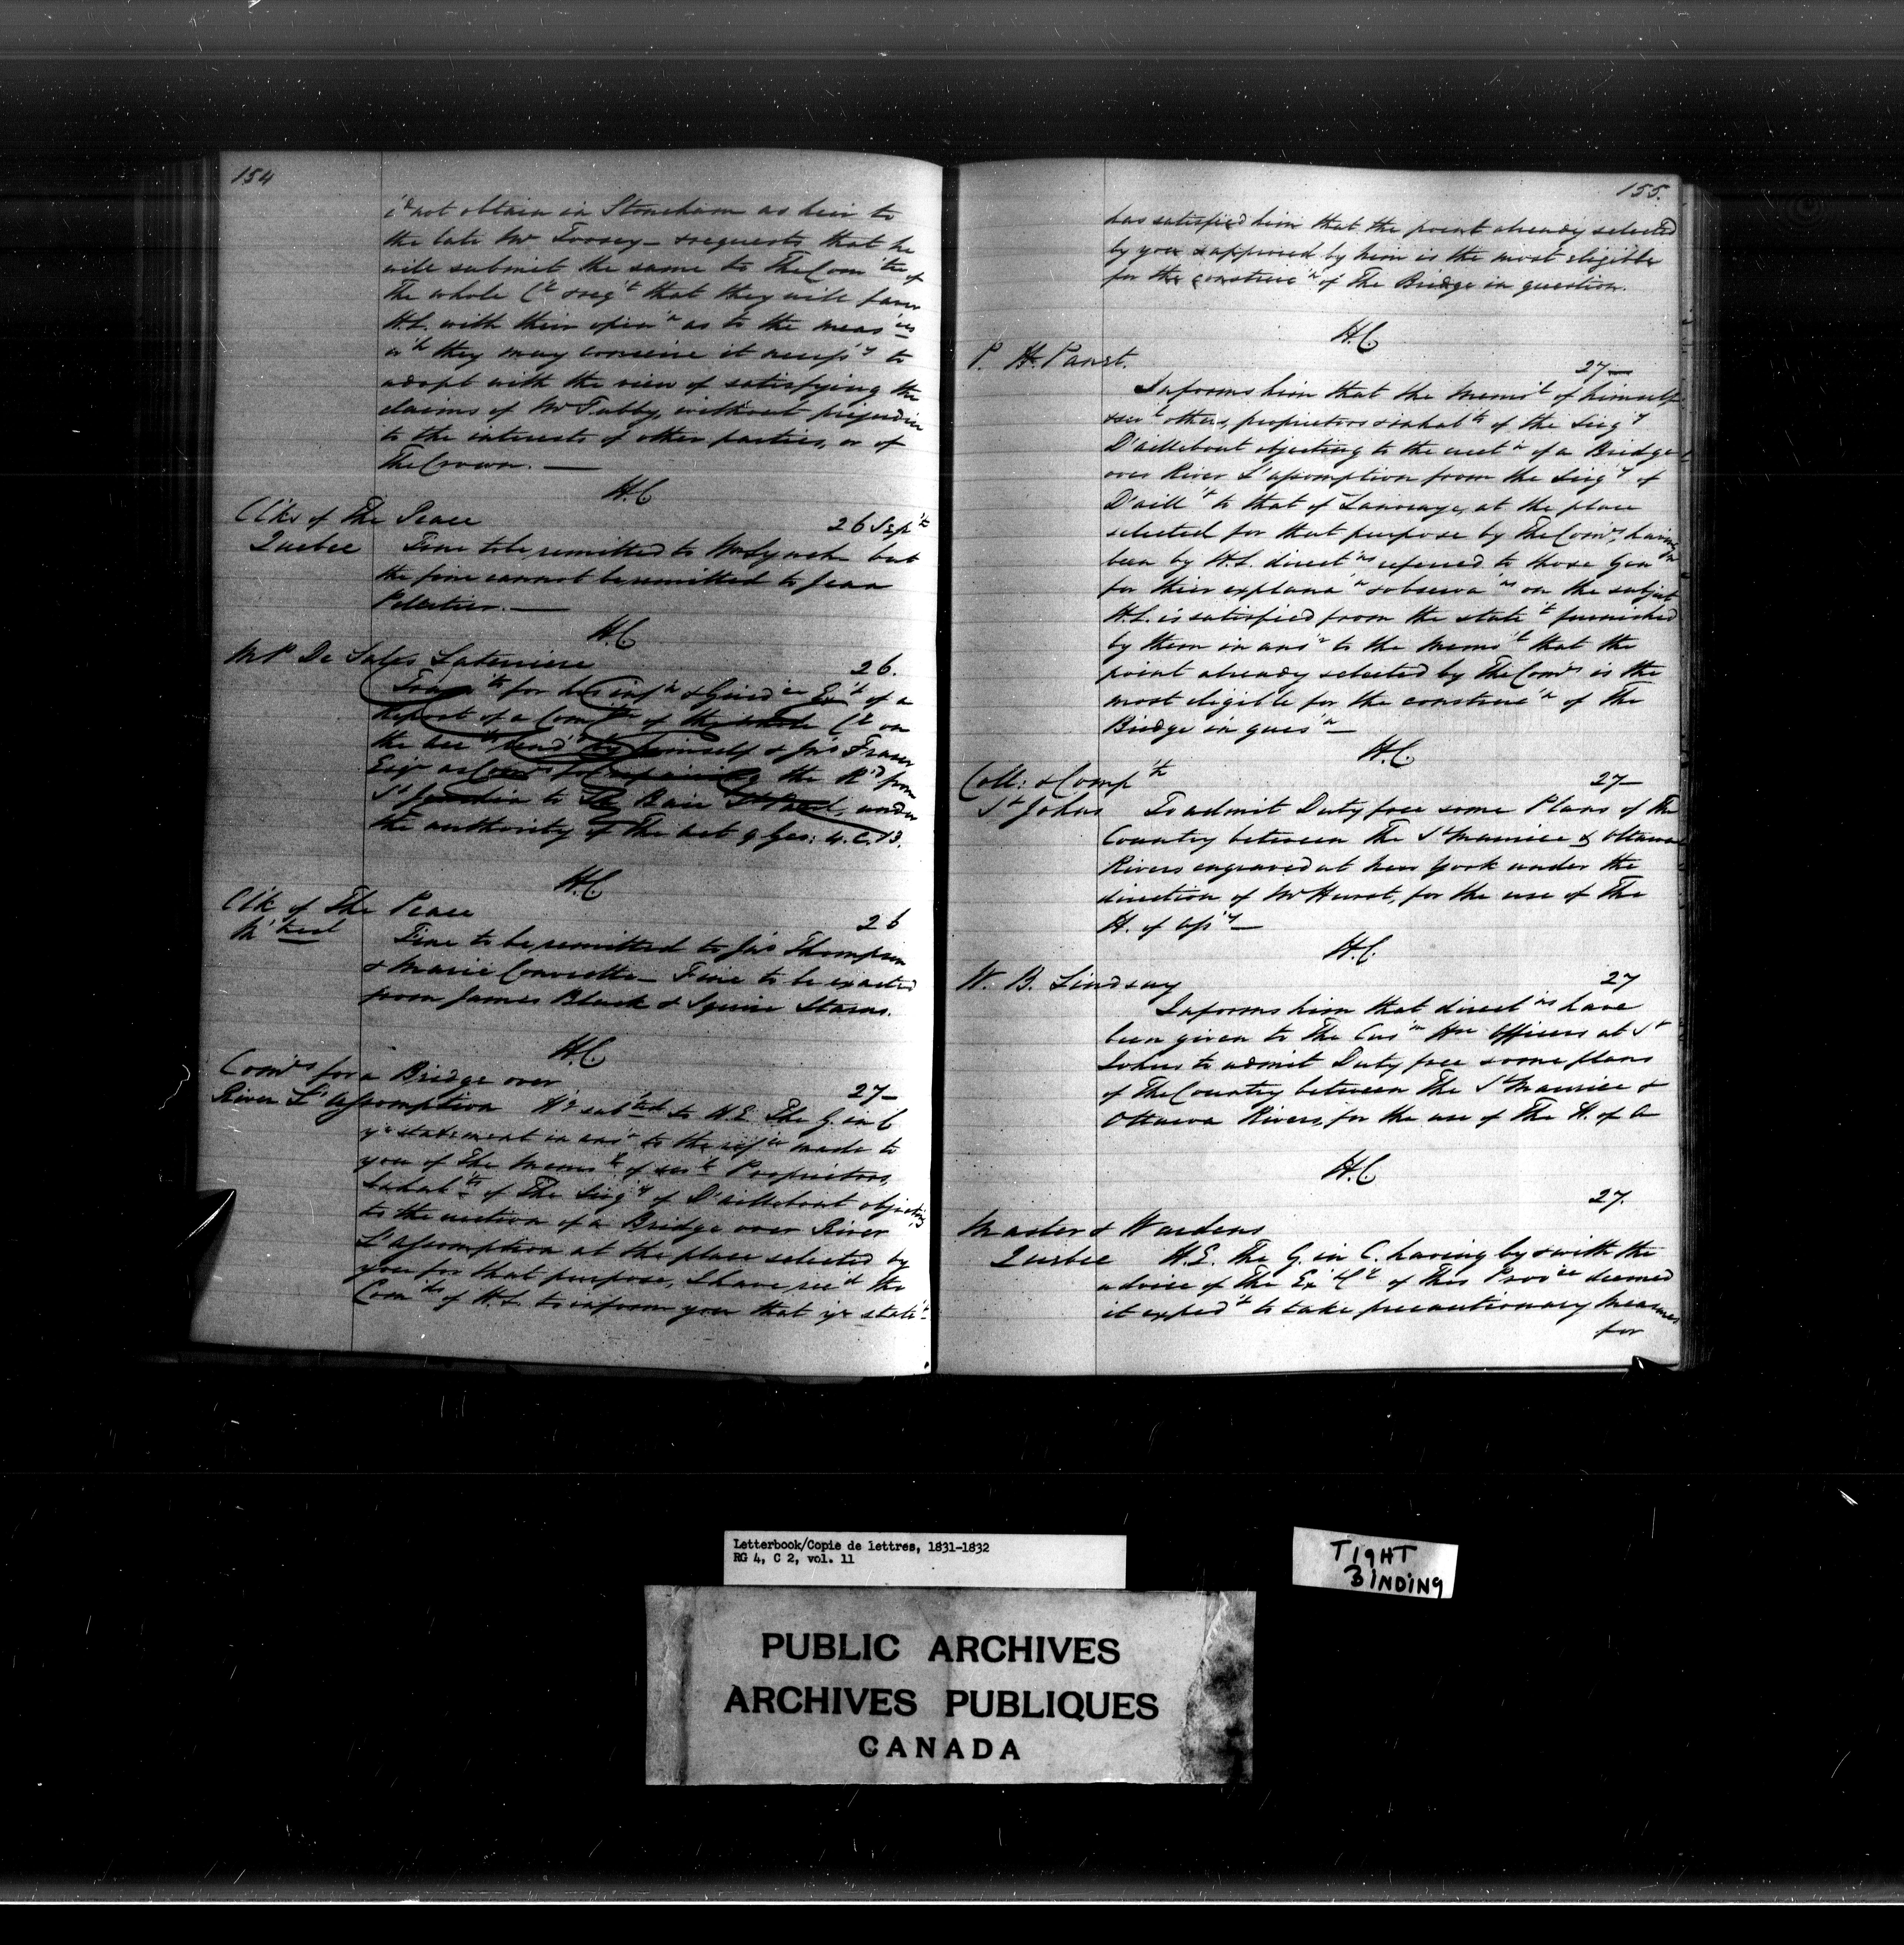 154
c'd not obtain in Stoneham as heir to
the late Mr Toosey – & requests that he
will submit the same to The Com'tee of
The whole C'l & req't that they will favor
H.E. with their opin'n as to the meas'res
w'h they may conceive it necess'y to
adopt with the view of satisfying the
claims of Mr Tubby, without prejudice
to the interests of other parties, or of
The Crown. —
H.C
Clks of the Peace 26 Sep'r
Quebec Fine to be remitted to Wm Lynch but
the fine cannot be remitted to Jean
Pelletier. —
H.C
M P De Sales Laterriere 26.
Trans'ts for his inf'n & Guid'ce Ex't of a
Report of a Com'tee of the whole C'l on
the by himself & Jn's Fraser
Esqr as Com'rs for the R'd from
to The Baie St Paul, under
the authority of The act 9 Geo: 4. C. 13.
H.C
Clk of The Peace 26
M'treal Fine to be remitted to Jas Thompson
& Marie Fine to be exacted
from James Black & Squire Stearns.
H.C.
Com'rs for a Bridge over 27–
River L'assomption H'g sub'ted to H.E. The G. in C
yr statement in ans'r to the ref'ce made to
you of The Memo'l of sev'l Proprietors,
Inhab'ts of The Seig'y of D'aillebout objecting
to the erection of a Bridge over River
L'assomption at the place selected by
you for that purpose, I have rec'd the
Com'ds of H.E. to inform you that yr state't
155.
has satisfied him that the point already selected
by you & approved by him is the most eligible
for the construc'n of The Bridge in question.
H.C
P. H. Panet. 27—
Informs him that the Memo'l of himself
& sev'l others, proprietors & inhab'ts of the Seig'y
D'aillebout objecting to the erect'n of a Bridge
over River L'assomption from the Seig'y of
D'aill't to that of at the place
selected for that purpose by The Com'rs, having
been by H.E. direct'ns referred to those Gen'n
for their explana'n & observa'ns on the subject
H.E. is satisfied from the state't furnished
by them in ans'r to the Memo'l that the
point already selected by The Com'rs is the
most eligible for the construc'n of the
Bridge in ques'n —
H.C.
Coll: & Comp'r 27–
St Johns To admit Duty free some Plans of the
Country between The St Maurice & Ottawa
Rivers engraved at New York under the
direction of Mr Hurst, for the use of The
H. of Ass'y —
H.C.
W. B. Lindsay 27
Informs him that direct'ns have
been given to The Cus'm Hse Officers at St
Johns to admit Duty free some plans
of The Country between The St Maurice &
Ottawa Rivers, for the use of The H. of A
H.C
27.
Master & Wardens
Quebec H.E. The G. in C. having by & with the
advice of The Ex'C'l of this Prov'ce deemed
it exped't to take precautionary measures
for
Letterbook/Copie de lettres, 1831-1832
RG 4, C 2, vol. 11
TIGHT
BINDING
PUBLIC ARCHIVES
ARCHIVES PUBLIQUES
CANADA